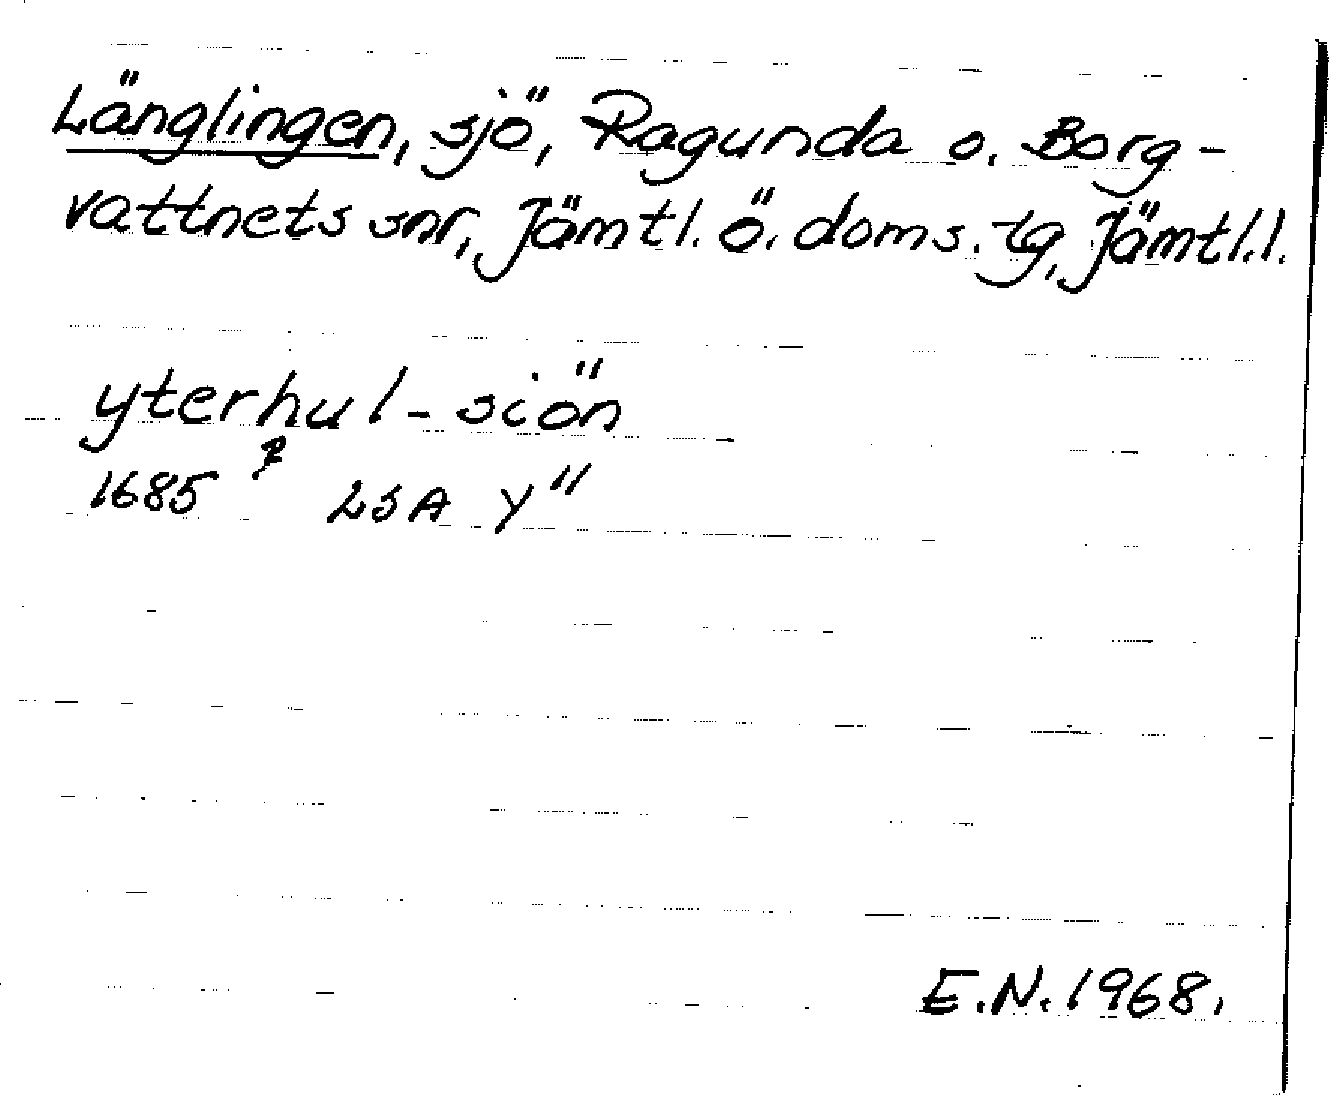 Länglingen, sjö, Ragunda o. Borg-
vattnets snr, Jämtl. ö. doms. tg, Jämtl.l.
yterhul-siön
1685 ? LSA Y"
E.N. 1968.